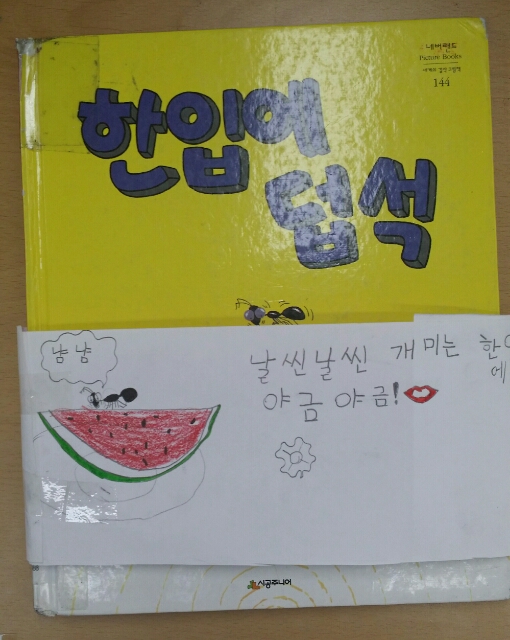 네버랜드
Picture Books
세계의 걸작 그림책
144
한입에
덥석
냠냠
날씬날씬 개미는 한
에
야금야금!
시공주니어